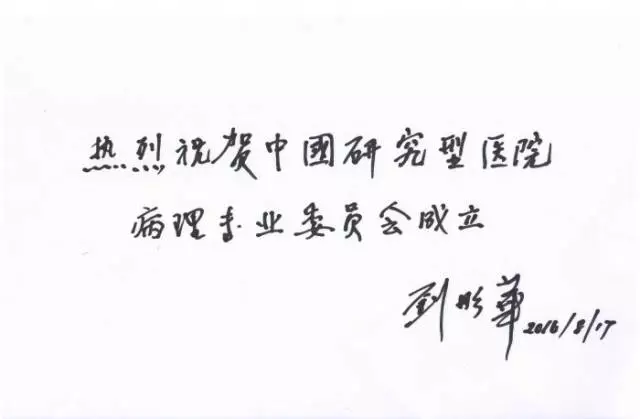 热烈祝贺中國研究型医院
病理专业委员会成立
刘彤華 2016/8/17